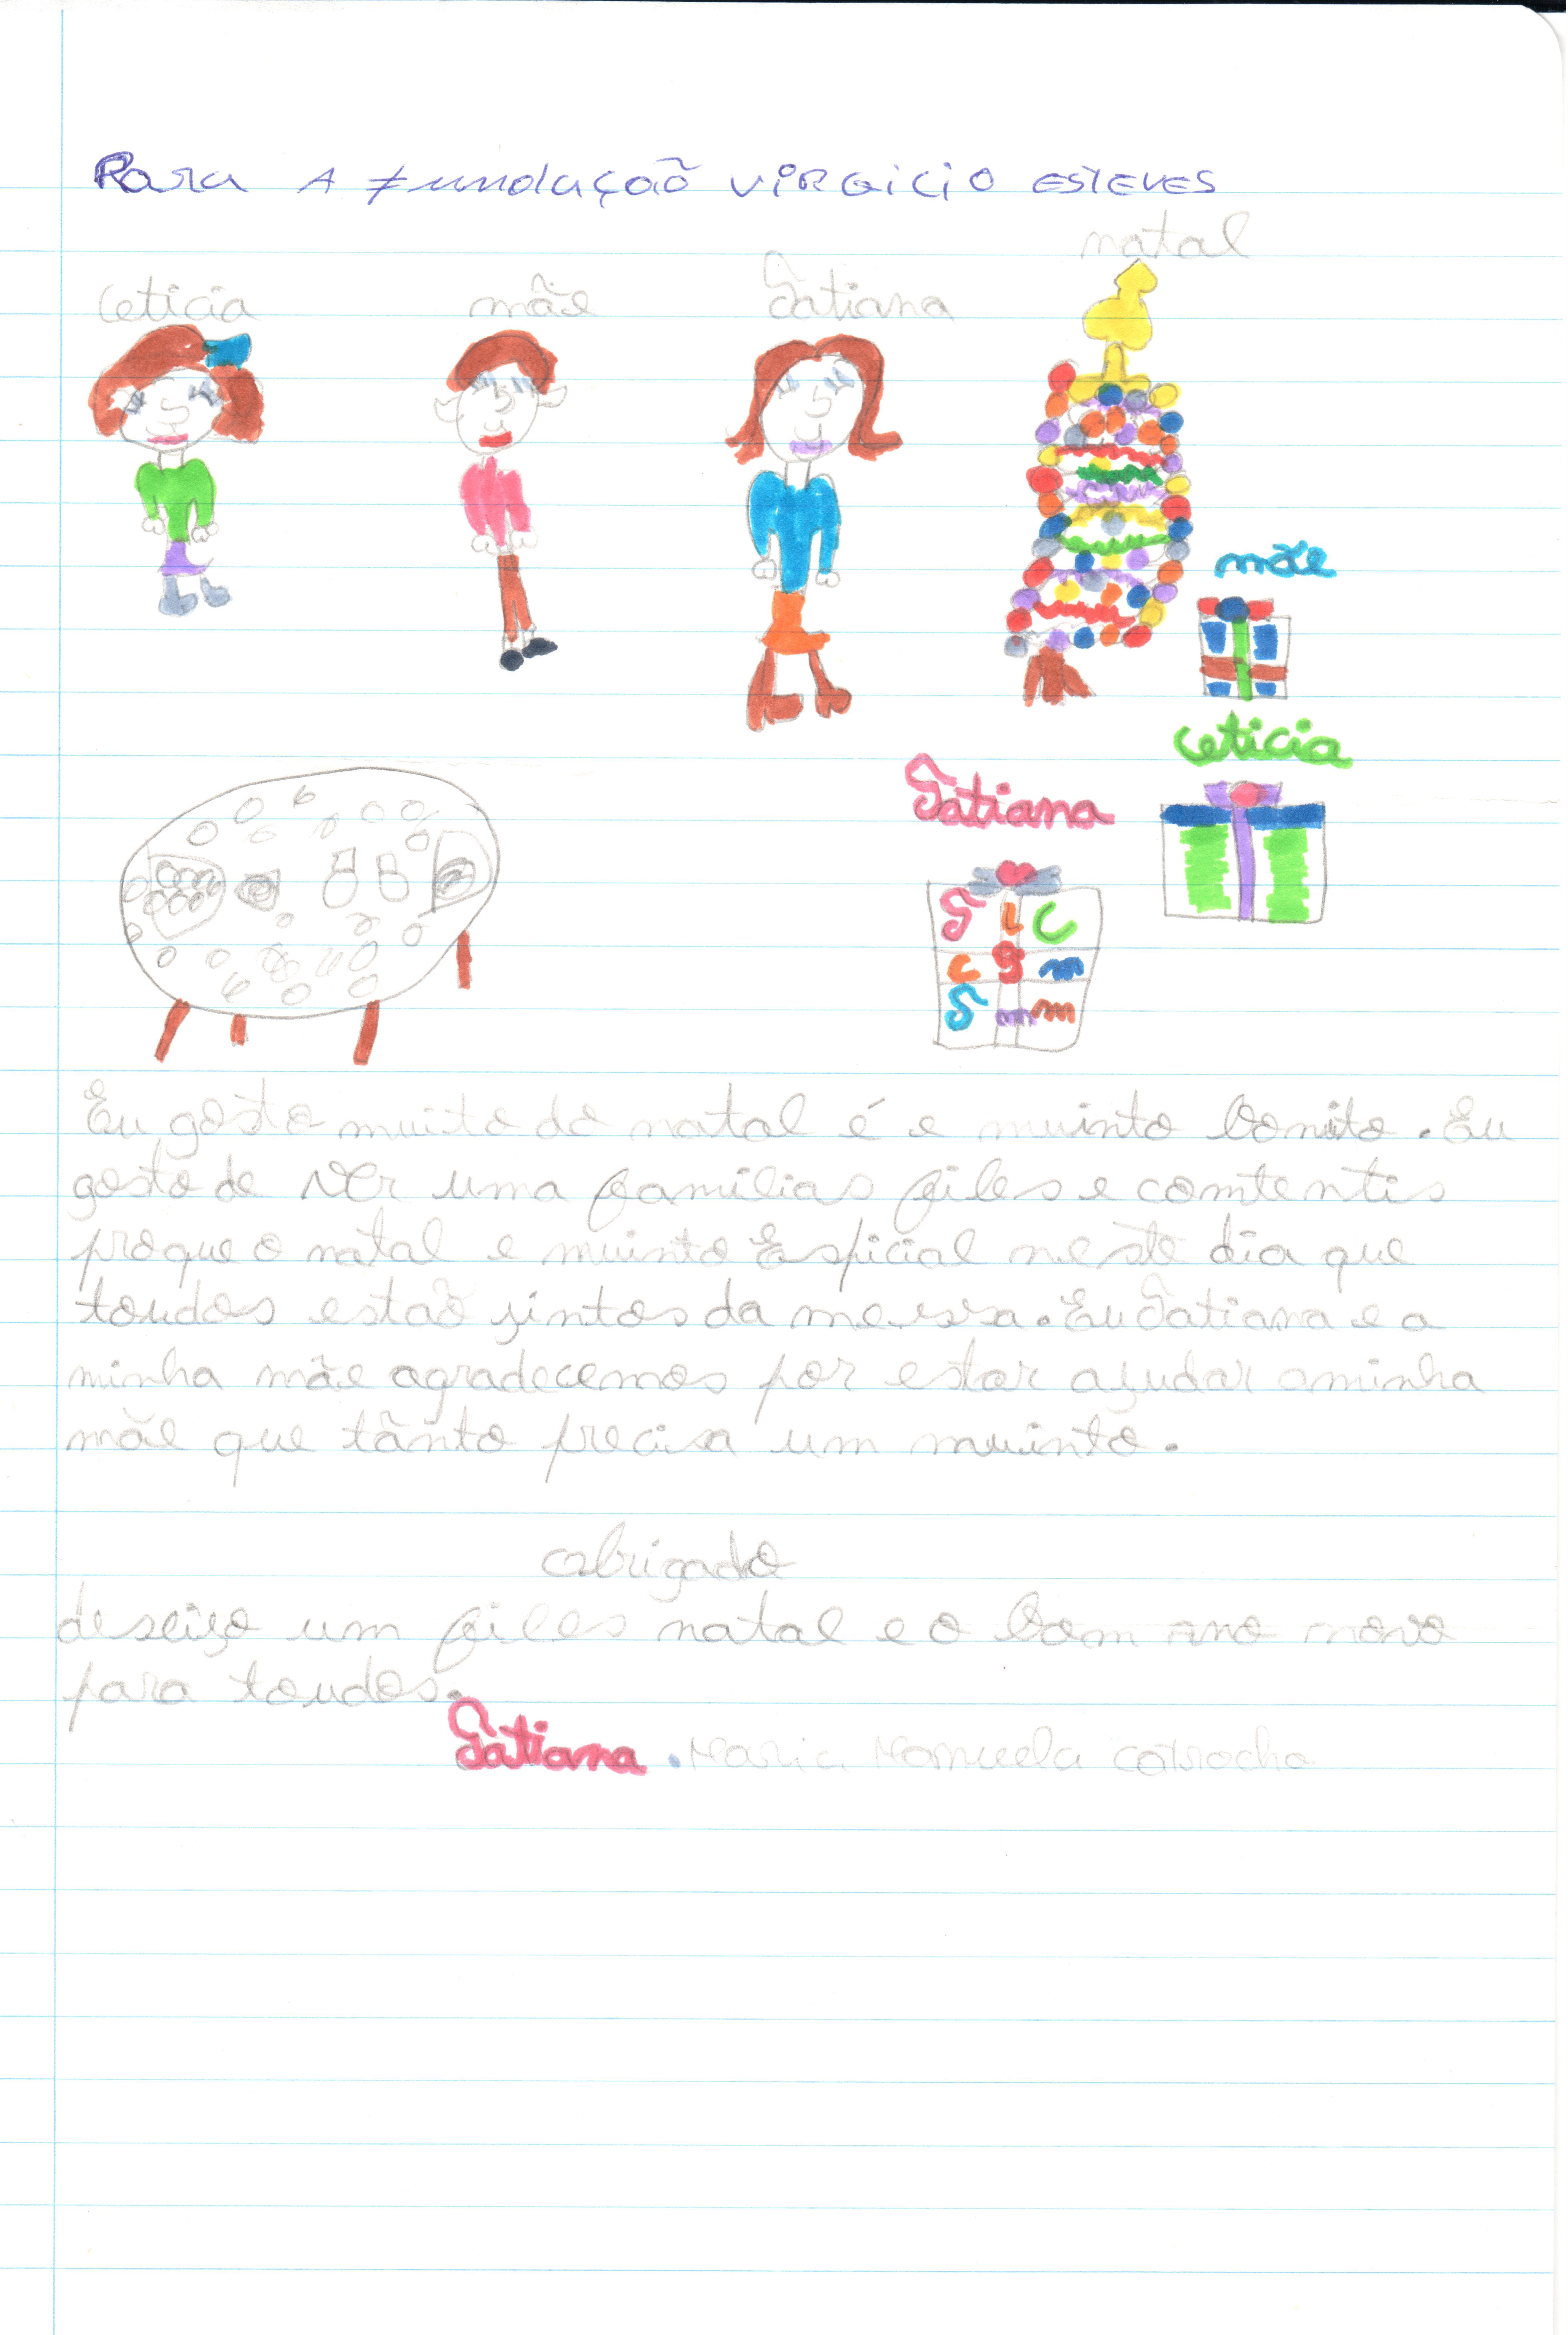 Para A Fundação VIRGICIO ESTEVES
natal
Leticia mãe Tatiana
mãe
Leticia
Tatiana
T L C
C T m
T m m
Eu gosto muito do natal é e muinto bonito. Eu
gosto de ver uma familias files e comtentis
proque o natal e muinto Espicial neste dia que
toudos estaõ jintos da messa. Eu Tatiana e a
minha mãe agradecemos por estar ajudar aminha
mãe que tãnto precisa um muinto.
obrigado
deseiyo um files natal e o bom ano novo
para toudos.
Tatiana . Maria Manuela